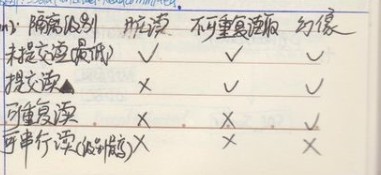 隔离级别 脏读 不可重复读 幻像
未提交读(最低) ✓ ✓ ✓
提交读 × ✓ ✓
可重复读 × × ✓
可串行读(级别高) × × ×